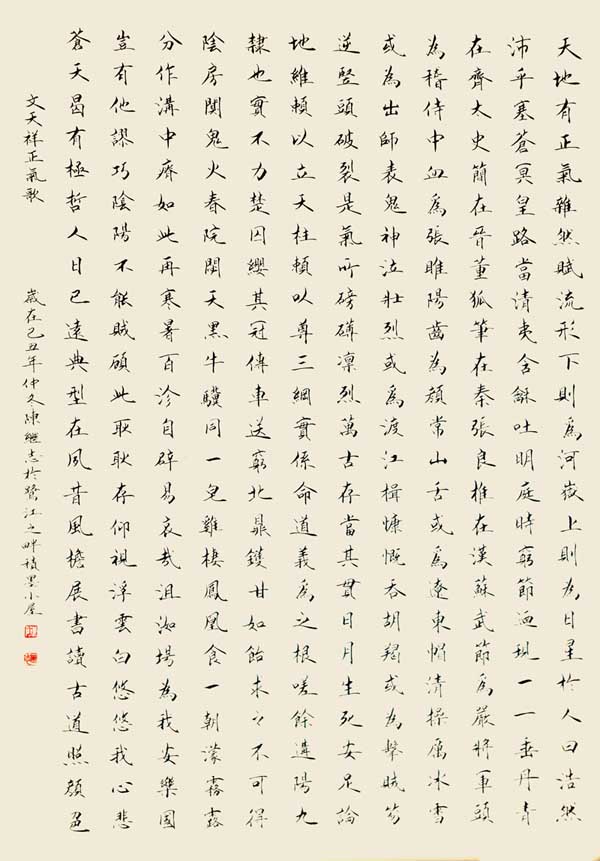 天地有正氣雜然賦流形下則爲河嶽上則為日星於人曰浩然
沛乎塞蒼冥皇路當清夷含龢吐明庭時窮節迺現一一垂丹青
在齊太史簡在晉董狐筆在秦張良椎在漢蘇武節爲嚴將軍頭
為稽侍中血爲張睢陽齒為顏常山舌或爲遼東帽清操厲冰雪
或為出師表鬼神泣壯烈或爲渡江楫慷慨吞胡羯或為擊賊笏
逆豎頭破裂是氣所磅礴凜烈萬古存當其貫日月生死安足論
地維賴以立天柱賴以尊三綱實係命道義爲之根嗟餘遘陽九
隸也實不力楚囚纓其冠傳車送窮北鼎鑊甘如飴求之不可得
陰房闃鬼火春院閟天黑牛驥同一皂雞棲鳳凰食一朝濛霧露
分作溝中瘠如此再寒暑百沴自辟易哀哉沮洳場為我安樂國
豈有他謬巧陰陽不能賊顧此耿耿存仰視浮雲白悠悠我心悲
蒼天曷有極哲人日已遠典型在夙昔風檐展書讀古道照顏色
文天祥正氣歌
歲在己丑年仲冬陳繼志於鷺江之畔積墨小屋